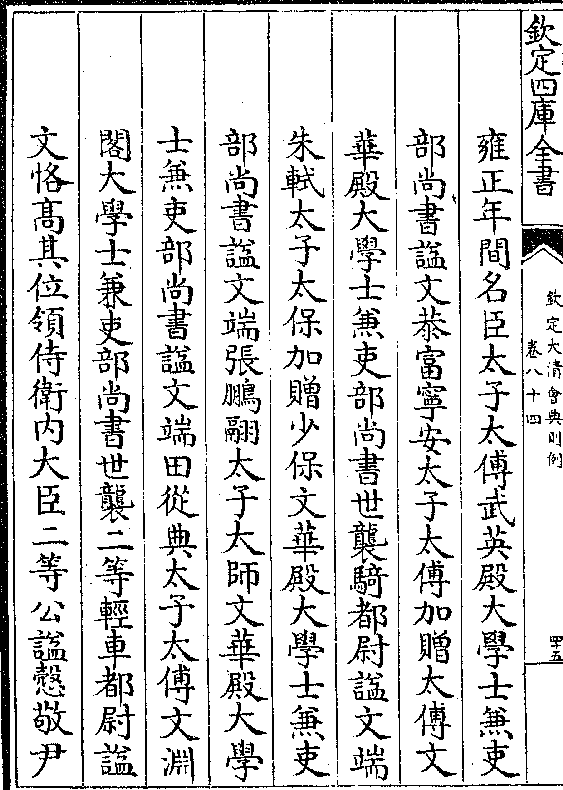 欽定四庫全書
欽定大清會典則例
卷八十四
四十五
雍正年間名臣太子太傅武英殿大學士兼吏
部尚書諡文恭富寧安太子太傅加贈太傅文
華殿大學士兼吏部尚書世襲騎都尉諡文端
朱軾太子太保加贈少保文華殿大學士兼吏
部尚書諡文端張鵬翮太子太師文華殿大學
士兼吏部尚書諡文端田從典太子太傅文淵
閣大學士兼吏部尚書世襲二等輕車都尉諡
文恪髙其位領侍衛内大臣二等公諡慤敬尹